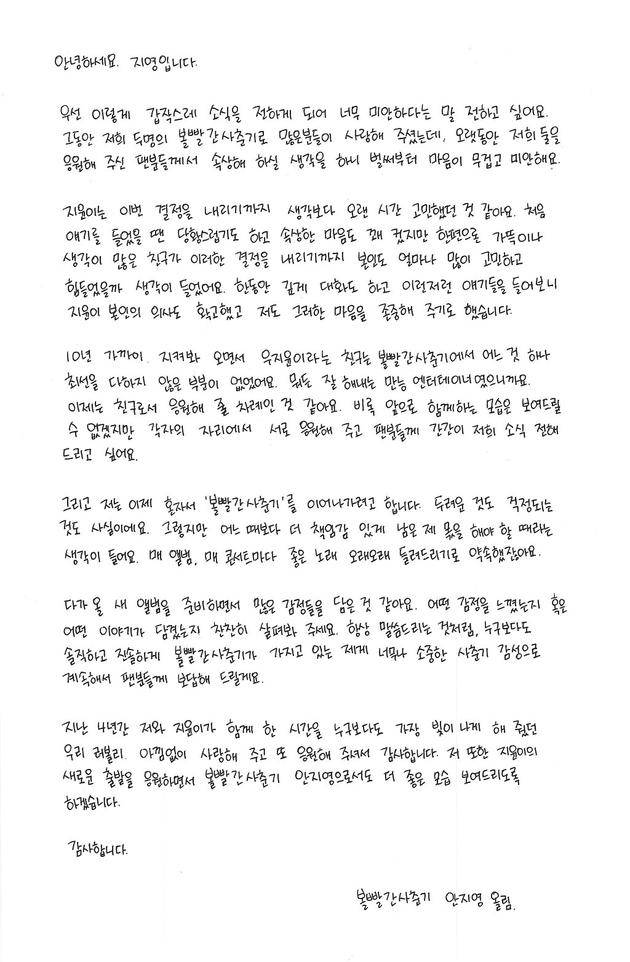 안녕하세요. 지영입니다.
우선 이렇게 갑작스레 소식을 전하게 되어 너무 미안하다는 말 전하고 싶어요.
그동안 저희 두명의 볼빨간사춘기로 많은분들이 사랑해 주셨는데, 오랫동안 저희 둘을
응원해 주신 팬분들께서 속상해 하실 생각을 하니 벌써부터 마음이 무겁고 미안해요.
지윤이는 이번 결정을 내리기까지 생각보다 오랜 시간 고민했던 것 같아요. 처음
얘기를 들었을 땐 당황스럽기도 하고 속상한 마음도 꽤 컸지만 한편으로 가뜩이나
생각이 많은 친구가 이러한 결정을 내리기까지 본인도 얼마나 많이 고민하고
힘들었을까 생각이 들었어요. 한동안 깊게 대화도 하고 이런저런 얘기들을 들어보니
지윤이 본인의 의사도 확고했고 저도 그러한 마음을 존중해 주기로 했습니다.
10년 가까이 지켜봐 오면서 우지윤이라는 친구는 볼빨간사춘기에서 어느 것 하나
최선을 다하지 않은 부분이 없었어요. 뭐든 잘 해내는 만능 엔터테이너였으니까요.
이제는 친구로서 응원해 줄 차례인 것 같아요. 비록 앞으로 함께하는 모습은 보여드릴
수 없겠지만 각자의 자리에서 서로 응원해 주고 팬분들께 간간이 저희 소식 전해
드리고 싶어요.
그리고 저는 이제 혼자서 '볼빨간사춘기'를 이어나가려고 합니다. 두려운 것도 걱정되는
것도 사실이에요. 그렇지만 어느 때보다 더 책임감 있게 남은 제 몫을 해야 할 때라는
생각이 들어요. 매 앨범, 매 콘서트마다 좋은 노래 오래오래 들려드리기로 약속했잖아요.
다가올 새 앨범을 준비하면서 많은 감정들을 담은 것 같아요. 어떤 감정을 느꼈는지 혹은
어떤 이야기가 담겼는지 찬찬히 살펴봐 주세요. 항상 말씀드리는 것처럼, 누구보다도
솔직하고 진솔하게 볼빨간사춘기가 가지고 있는 제게 너무나 소중한 사춘기 감성으로
계속해서 팬분들께 보답해 드릴게요.
지난 4년간 저와 지윤이가 함께 한 시간을 누구보다도 가장 빛이나게 해 줬던
우리 러볼리. 아낌없이 사랑해 주고 또 응원해 주셔서 감사합니다. 저 또한 지윤이의
새로운 출발을 응원하면서 볼빨간사춘기 안지영으로서도 더 좋은 모습 보여드리도록
하겠습니다.
감사합니다.
볼빨간사춘기 안지영 올림.